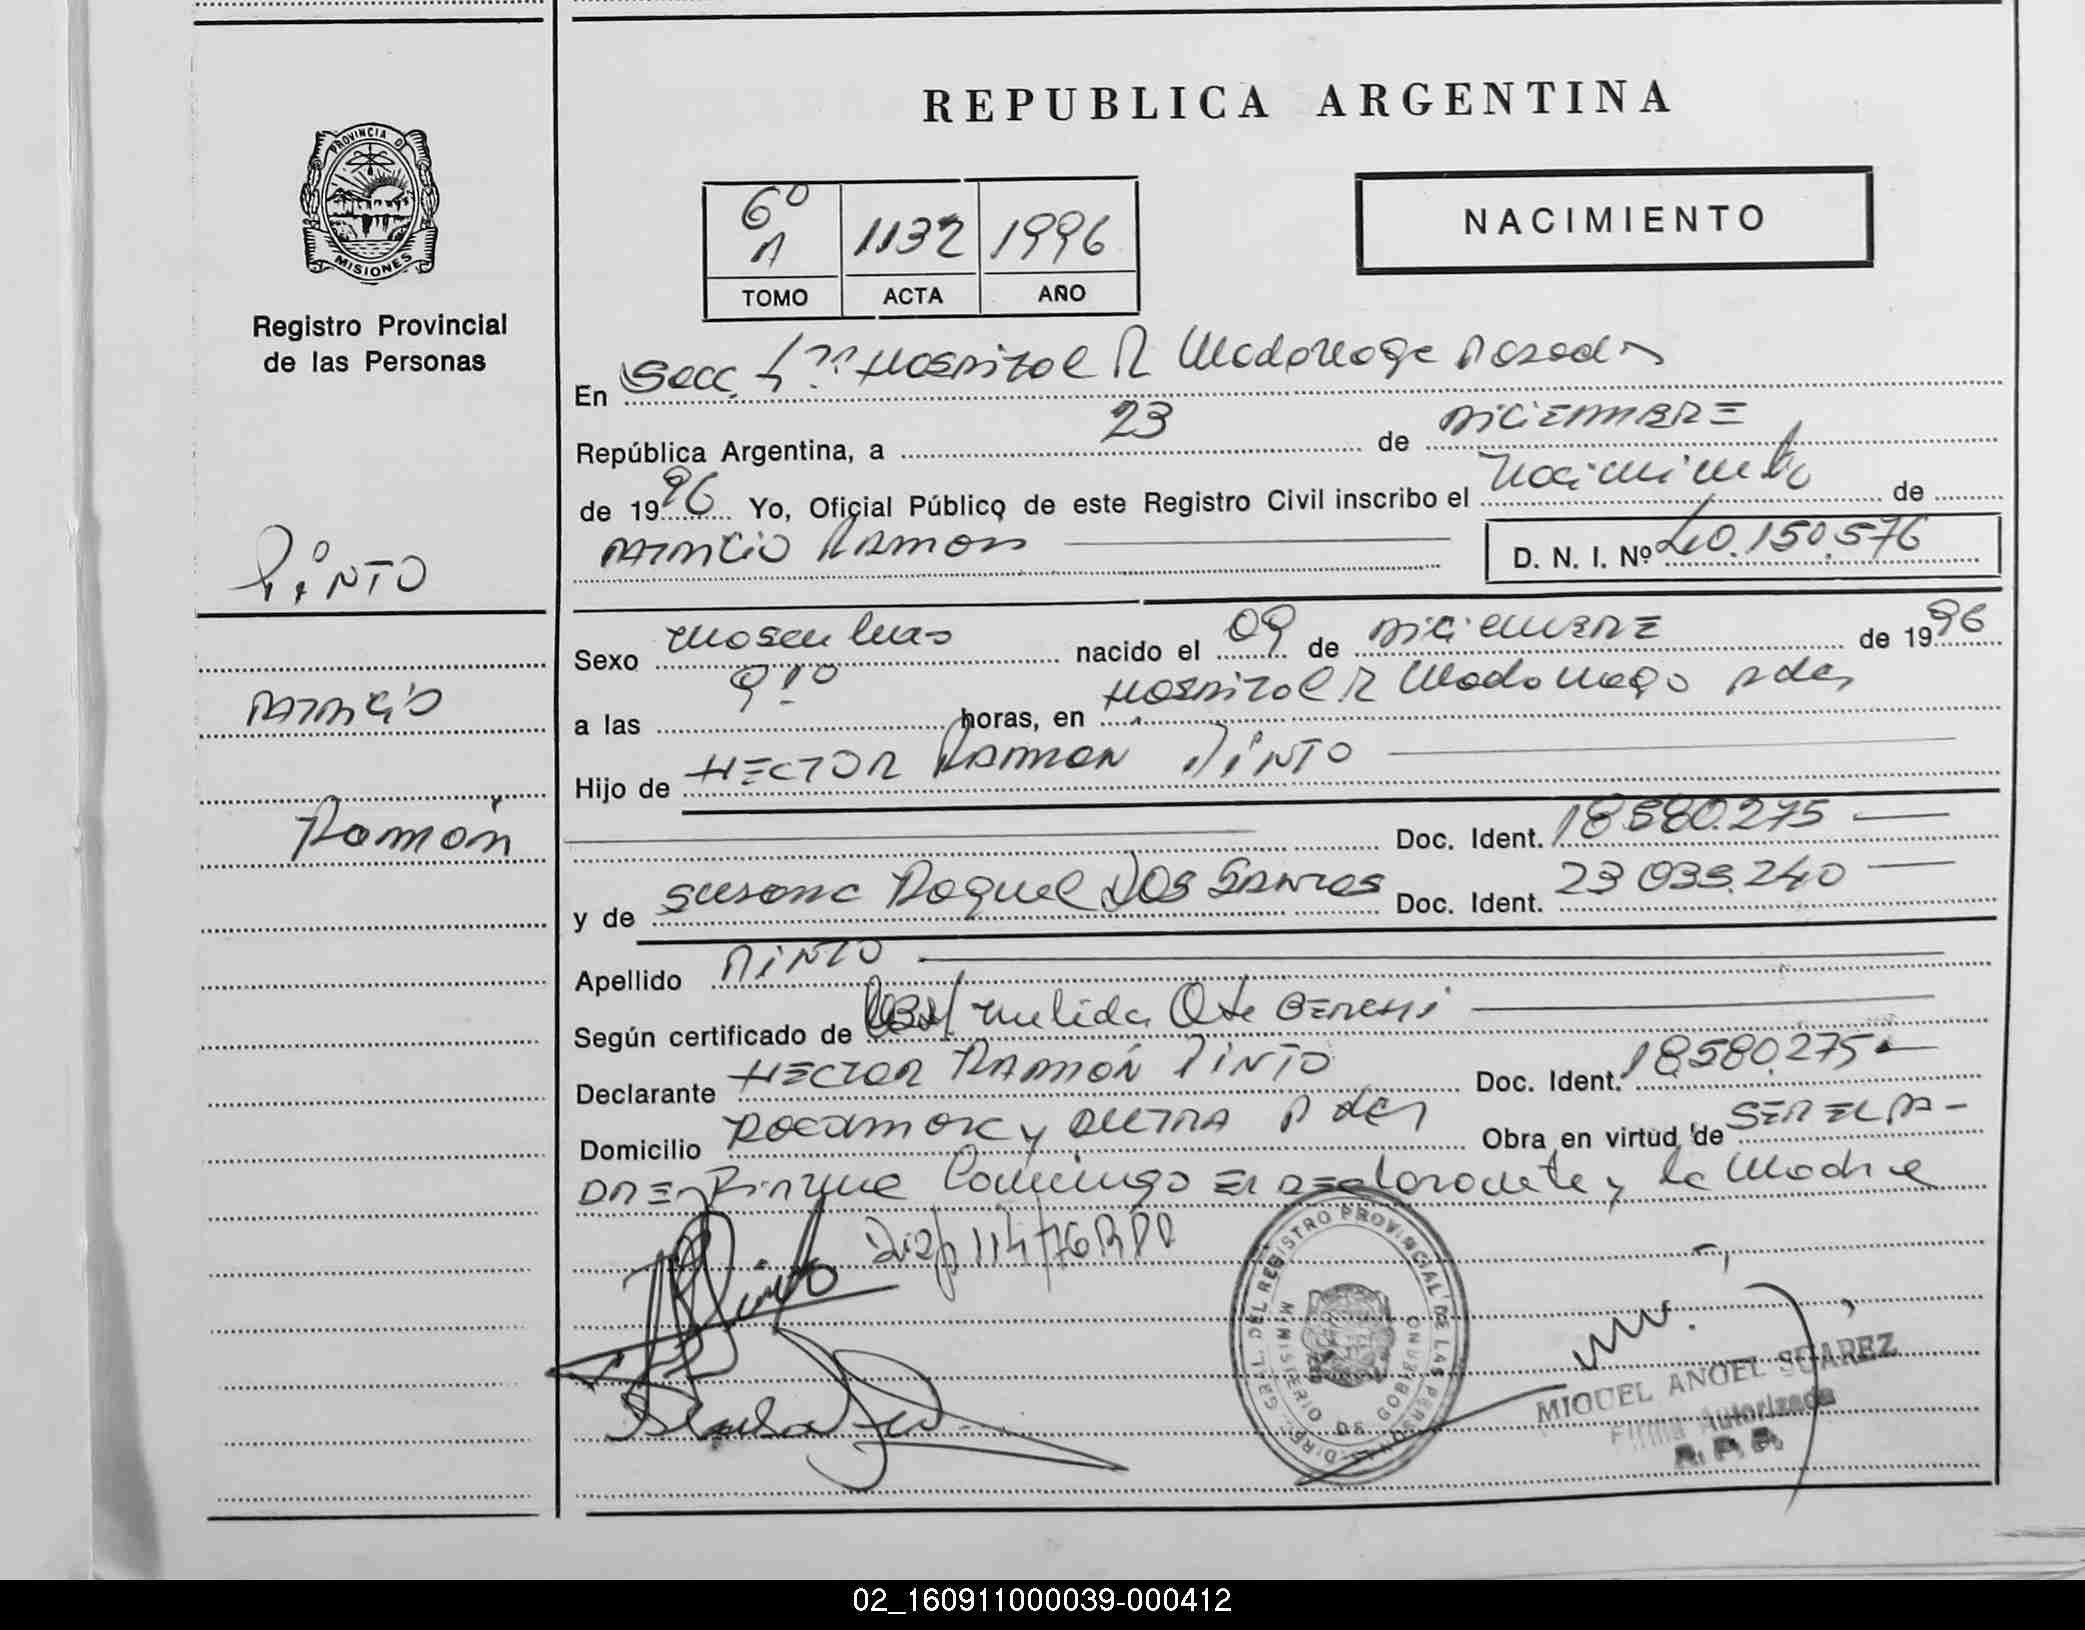 REPUBLICA ARGENTINA
PROVINCIA D
MISIONES
Registro Provincial
de las Personas
6º
A
1132
1996
TOMO
ACTA
AÑO
NACIMIENTO
En Secc 1ra Hospital R Madariaga Posadas
República Argentina, a 23 de DICIEMBRE
de 1996 Yo, Oficial Público de este Registro Civil inscribo el Nacimiento de
PATRICIO RAMON
D. N. I. Nº 40.150.576
PINTO
PATRICIO
Ramón
Sexo masculino nacido el 09 de DICIEMBRE de 1996
a las 9:10 horas, en Hospital R Madariaga Pdas
Hijo de HECTOR RAMON PINTO
Doc. Ident. 18580.275
y de Susana Raquel DOS SANTOS Doc. Ident. 23 033.240
Apellido PINTO
Según certificado de Obst Nelida
Declarante HECTOR RAMÓN PINTO Doc. Ident. 18580.275
Domicilio Rocamora y DUTRA Pdas Obra en virtud de SER EL PA-
DRE Firman Conmigo El Declarante y la Madre
Disp 114/76 RPP
DIREC. GRAL. DEL REGISTRO PROVINCIAL DE LAS PERSONAS
MINISTERIO DE GOBIERNO
MIGUEL ANGEL SUAREZ
Firma Autorizada
R. P. P.
02_160911000039-000412